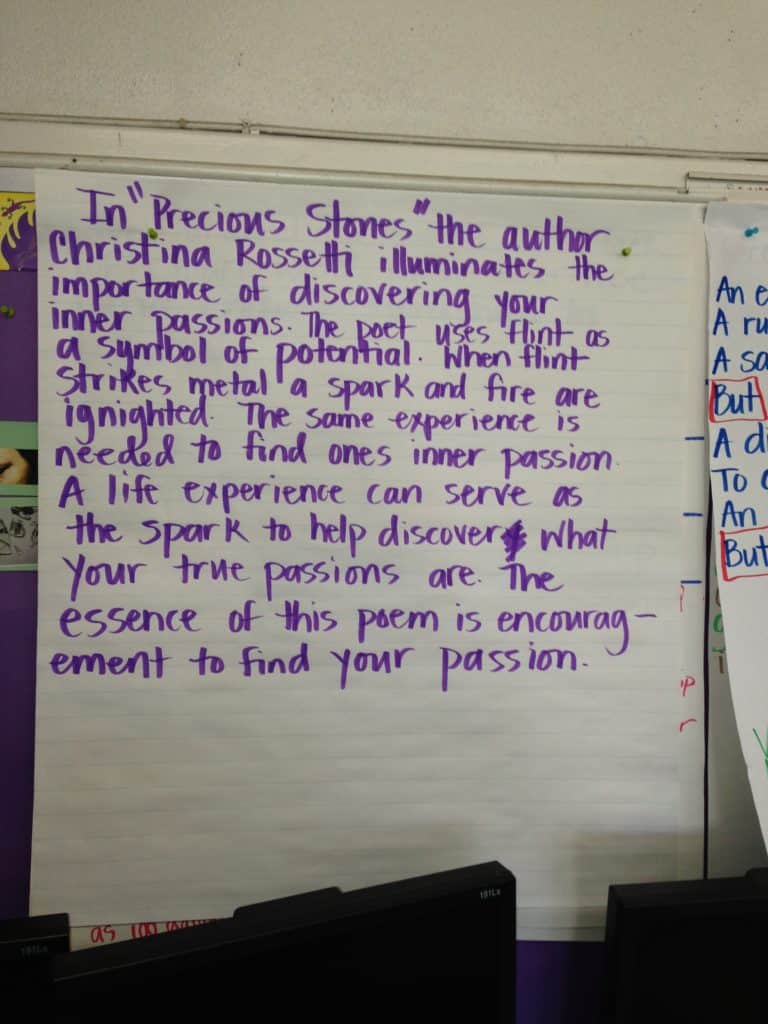 In "Precious Stones" the author
Christina Rossetti illuminates the
importance of discovering your
inner passions. The poet uses flint as
a symbol of potential. When flint
strikes metal a spark and fire are
ignighted. The same experience is
needed to find ones inner passion.
A life experience can serve as
the spark to help discover what
your true passions are. The
essence of this poem is encourag-
ement to find your passion.
An
A
A
But
A
To
An
But
as
191Lx
191Lx